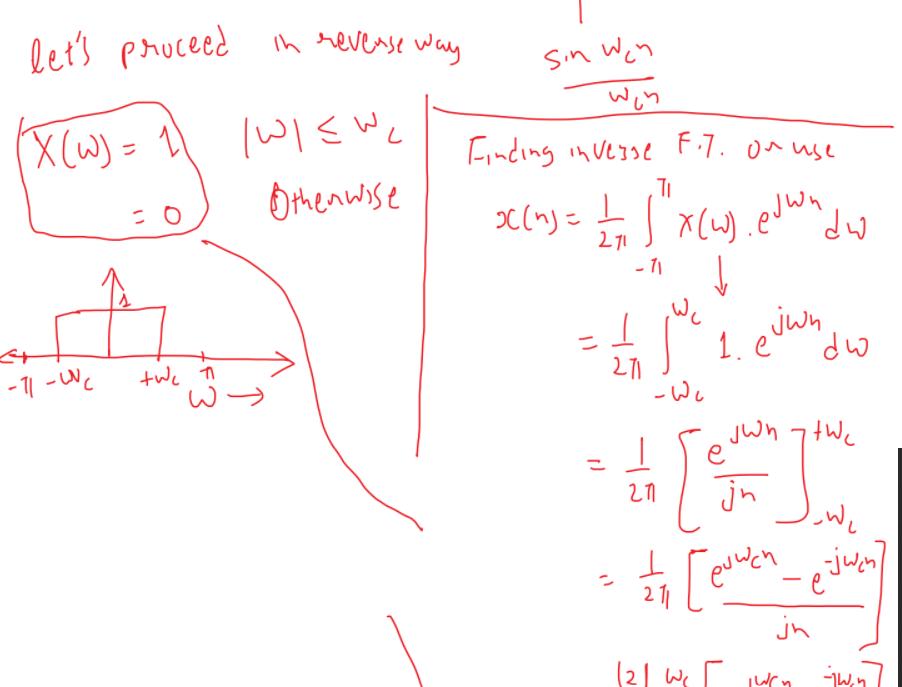 let's proceed in reverse way
sin ω_c n
ω_c n
X(ω) = 1 |ω| ≤ ω_c
= 0 Otherwise
1
-π -ω_c +ω_c π
ω →
Finding inverse F.T. on use
x(n) = 1/2π ∫_{-π}^{π} X(ω) . e^{jωn} dω
= 1/2π ∫_{-ω_c}^{ω_c} 1. e^{jωn} dω
= 1/2π [ e^{jωn} / jn ]_{-ω_c}^{+ω_c}
= 1/2π [ e^{jω_c n} - e^{-jω_c n} / jn ]